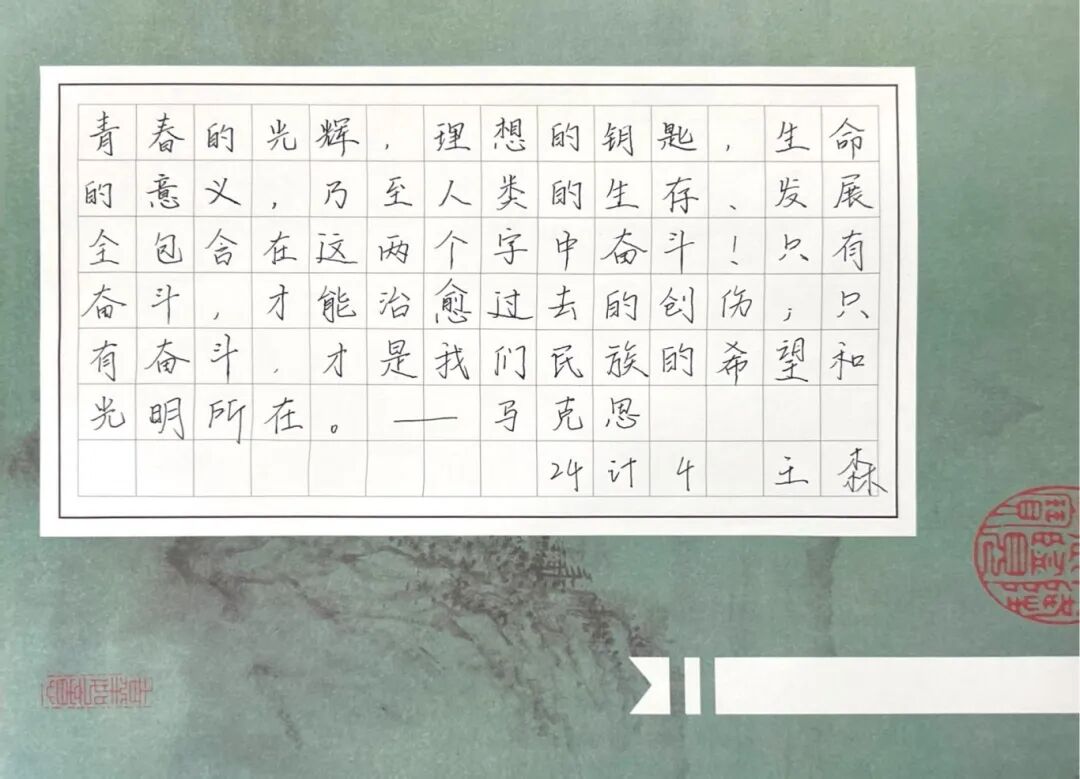 青春的光辉，理想的钥匙，生命
的意义，乃至人类的生存、发展
全包含在这两个字中奋斗！只有
奋斗，才能治愈过去的创伤；只
有奋斗，才是我们民族的希望和
光明所在。——马克思
24计4 王森